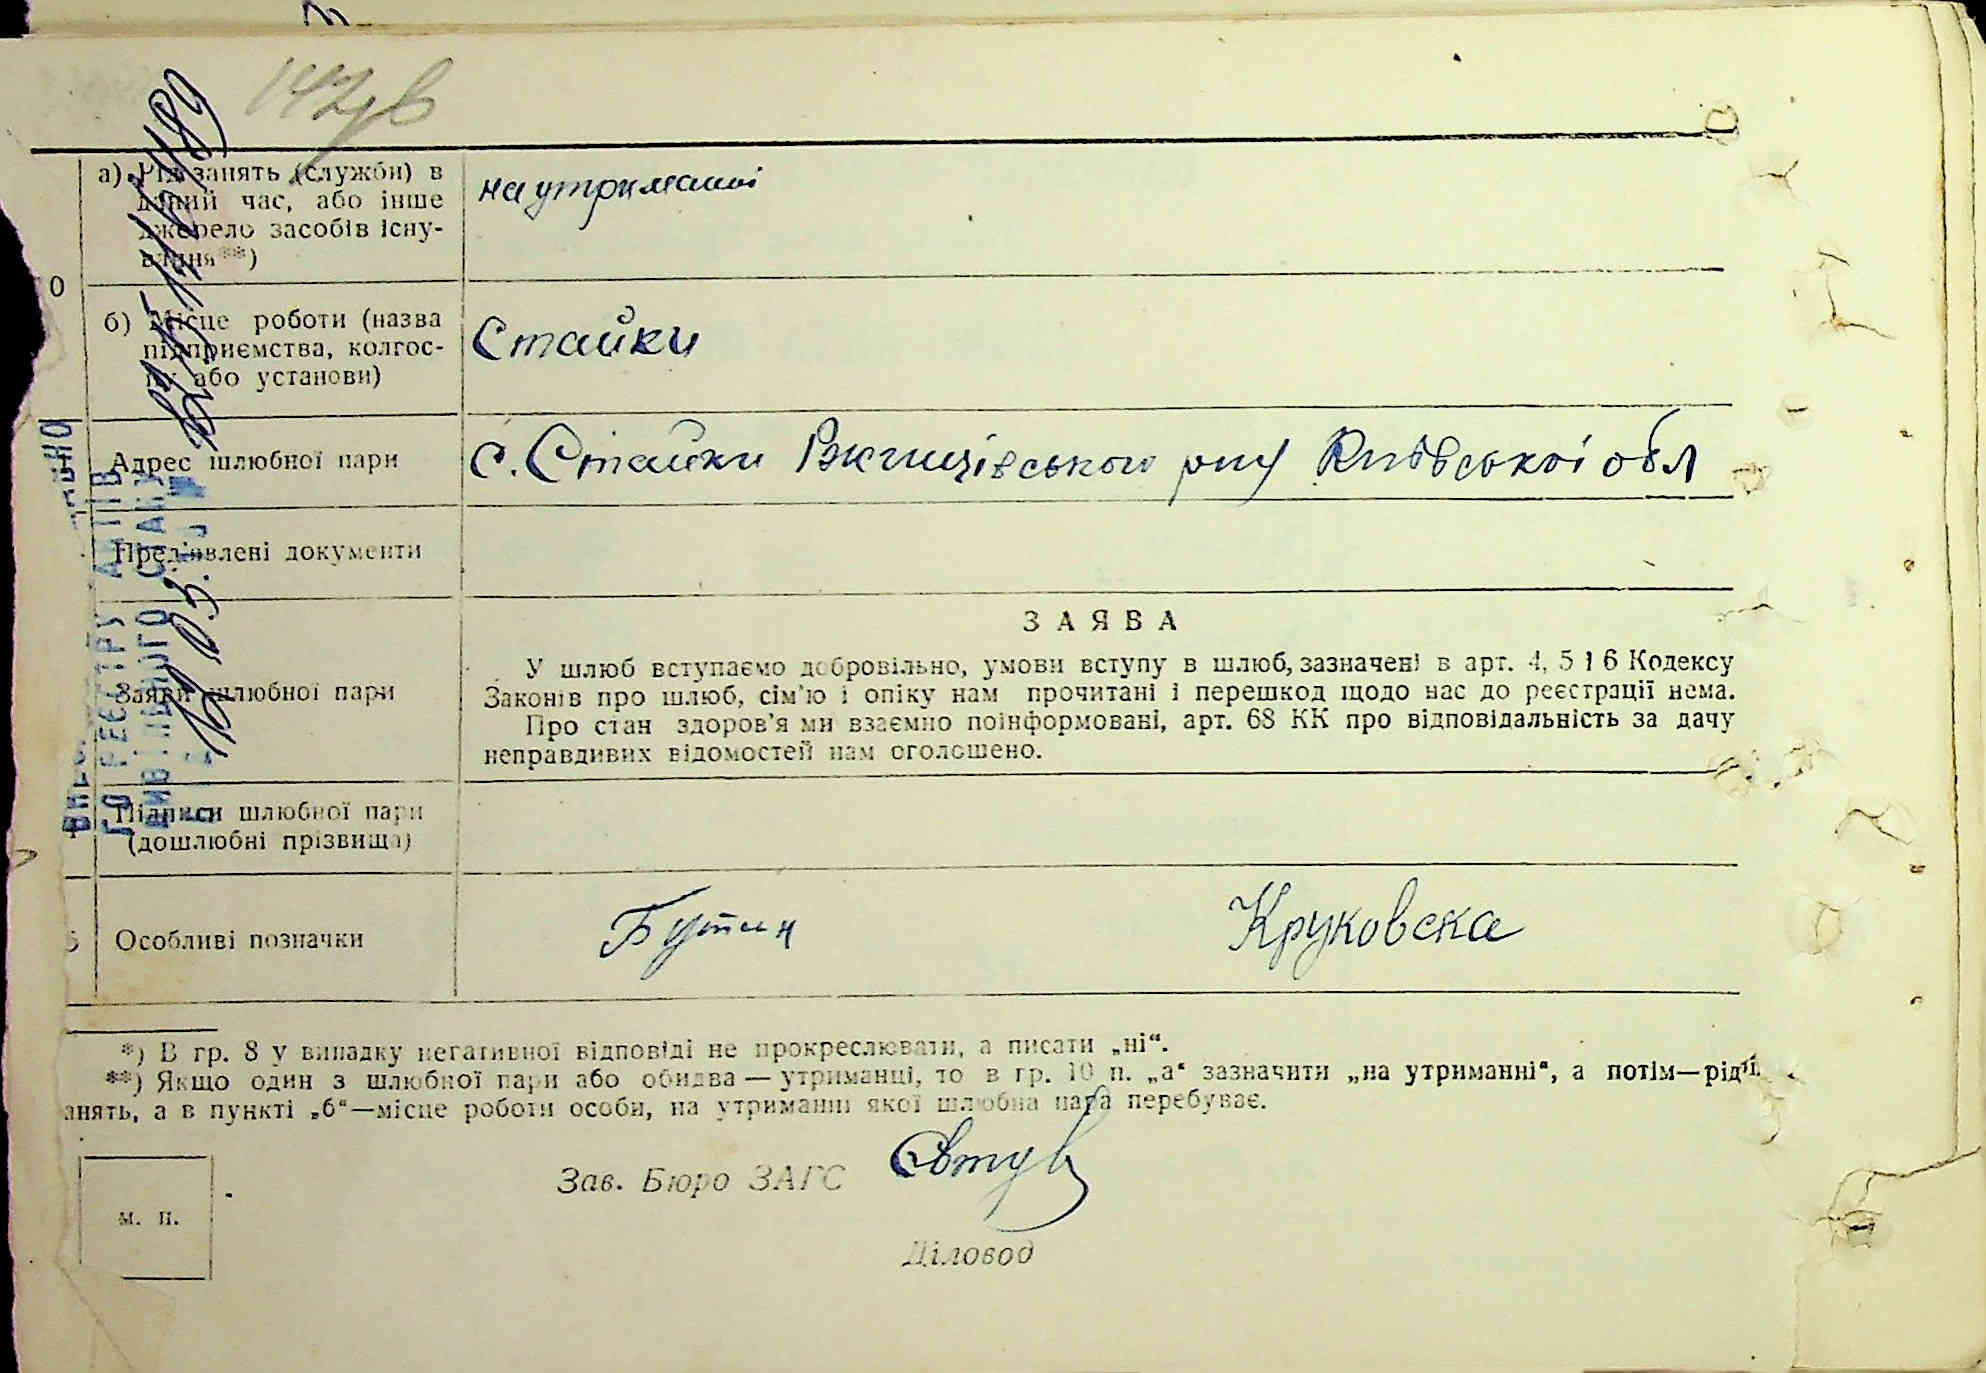 а) Рід занять (служби) в
даний час, або інше
джерело засобів існу-
вання**)
на утриманні
б) Місце роботи (назва
підприємства, колгос-
пу або установи)
Стайки
Адрес шлюбної пари
с. Стайки Ржищівського р-ну Київської обл
Пред'явлені документи
Заяви шлюбної пари
ЗАЯВА
У шлюб вступаємо добровільно, умови вступу в шлюб, зазначені в арт. 4, 5 і 6 Кодексу
Законів про шлюб, сім'ю і опіку нам прочитані і перешкод щодо нас до реєстрації нема.
Про стан здоров'я ми взаємно поінформовані, арт. 68 КК про відповідальність за дачу
неправдивих відомостей нам оголошено.
Підписи шлюбної пари
(дошлюбні прізвища)
Особливі позначки
Круковска
*) В гр. 8 у випадку негативної відповіді не прокреслювати, а писати „ні“.
**) Якщо один з шлюбної пари або обидва — утриманці, то в гр. 10 п. „а“ зазначити „на утриманні“, а потім—рід
анять, а в пункті „б“—місце роботи особи, на утриманні якої шлюбна пара перебуває.
Зав. Бюро ЗАГС
Діловод
м. п.
ДО РЕЄСТРУ АКТІВ
ЦИВІЛЬНОГО СТАНУ